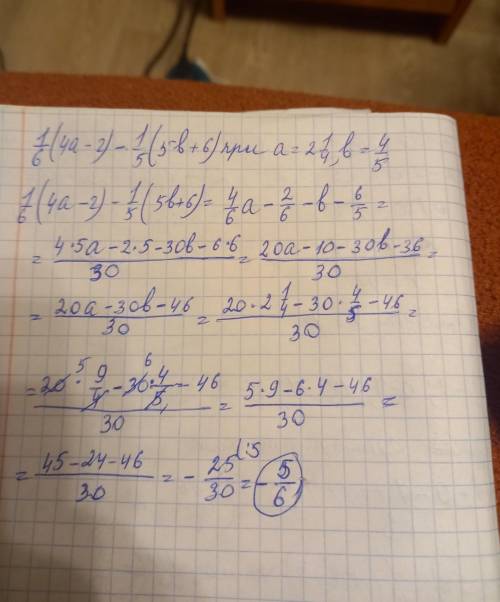 1/6(4a-2)-1/5(5b+6) при a=2 1/4, b=4/5
1/6(4a-2)-1/5(5b+6)=4/6a-2/6-b-6/5=
=(4·5a-2·5-30b-6·6)/30=(20a-10-30b-36)/30=
=(20a-30b-46)/30=(20·2 1/4-30·4/5-46)/30=
=(20·5 9/4-30·6 4/5-46)/30=(5·9-6·4-46)/30=
=(45-24-46)/30=-25/30(:5=-5/6